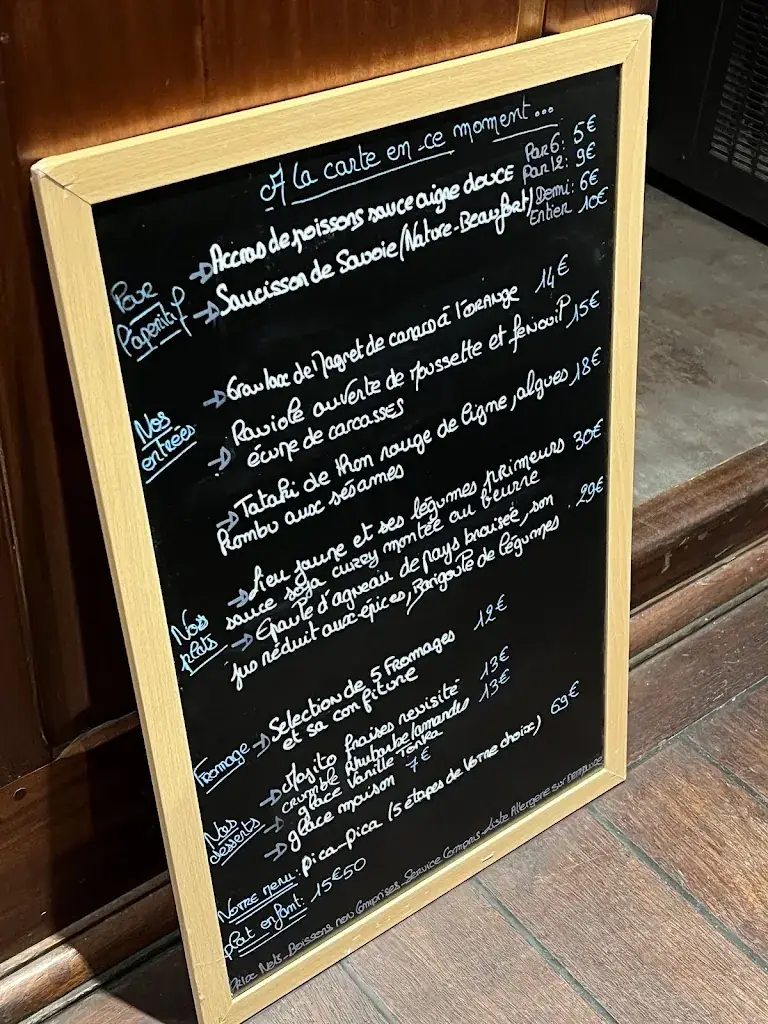 A la carte en ce moment...
Pour l'aperitif
→ Accras de poissons sauce aigre douce Par 6: 5€
Par 12: 9€
→ Saucisson de Savoie (Nature-Beaufort) Demi: 6€
Entier 10€
Nos entrées
→ Gravlax de Magret de canard à l'orange 14€
→ Raviole ouverte de Moussette et fenouil 15€
écume de carcasses
→ Tataki de thon rouge de ligne, algues 18€
Kombu aux sésames
Nos plats
→ Lieu jaune et ses légumes primeurs 30€
sauce soja curry montée au beurre
→ Epaule d'agneau de pays braisée, son 29€
jus réduit aux épices, Barigoule de légumes
Fromage → Selection de 5 Fromages 12€
et sa confiture
Nos desserts
→ Mojito fraises revisité 13€
→ crumble Rhubarbe/amandes 13€
glace Vanille Tonka
→ glace maison 7€
Notre menu: pica-pica (5 étapes de Votre choix) 69€
Plat enfant: 15€50
Prix Nets-Boissons non Comprises-Service Compris-Liste Allergene sur Demande